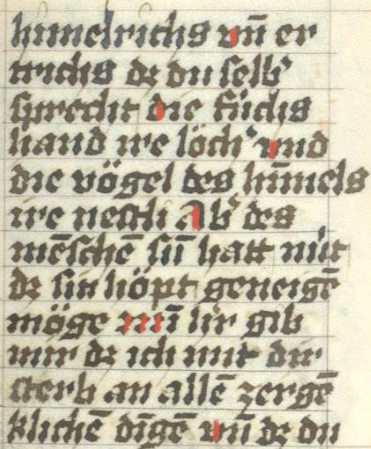 himelrichs vñ er
trichs dz du selbˀ
sprecht die füchs
hand ire löchˀ vnd
die vögel des him̄els
ire nestli Abˀ des
mēschē sun̄ hatt nüt
dz sin höpt geneigē
möge nun̄ hˀr gib
mir dz ich mit dir
sterb an allē zergē
klichē dīgē vñ dz du